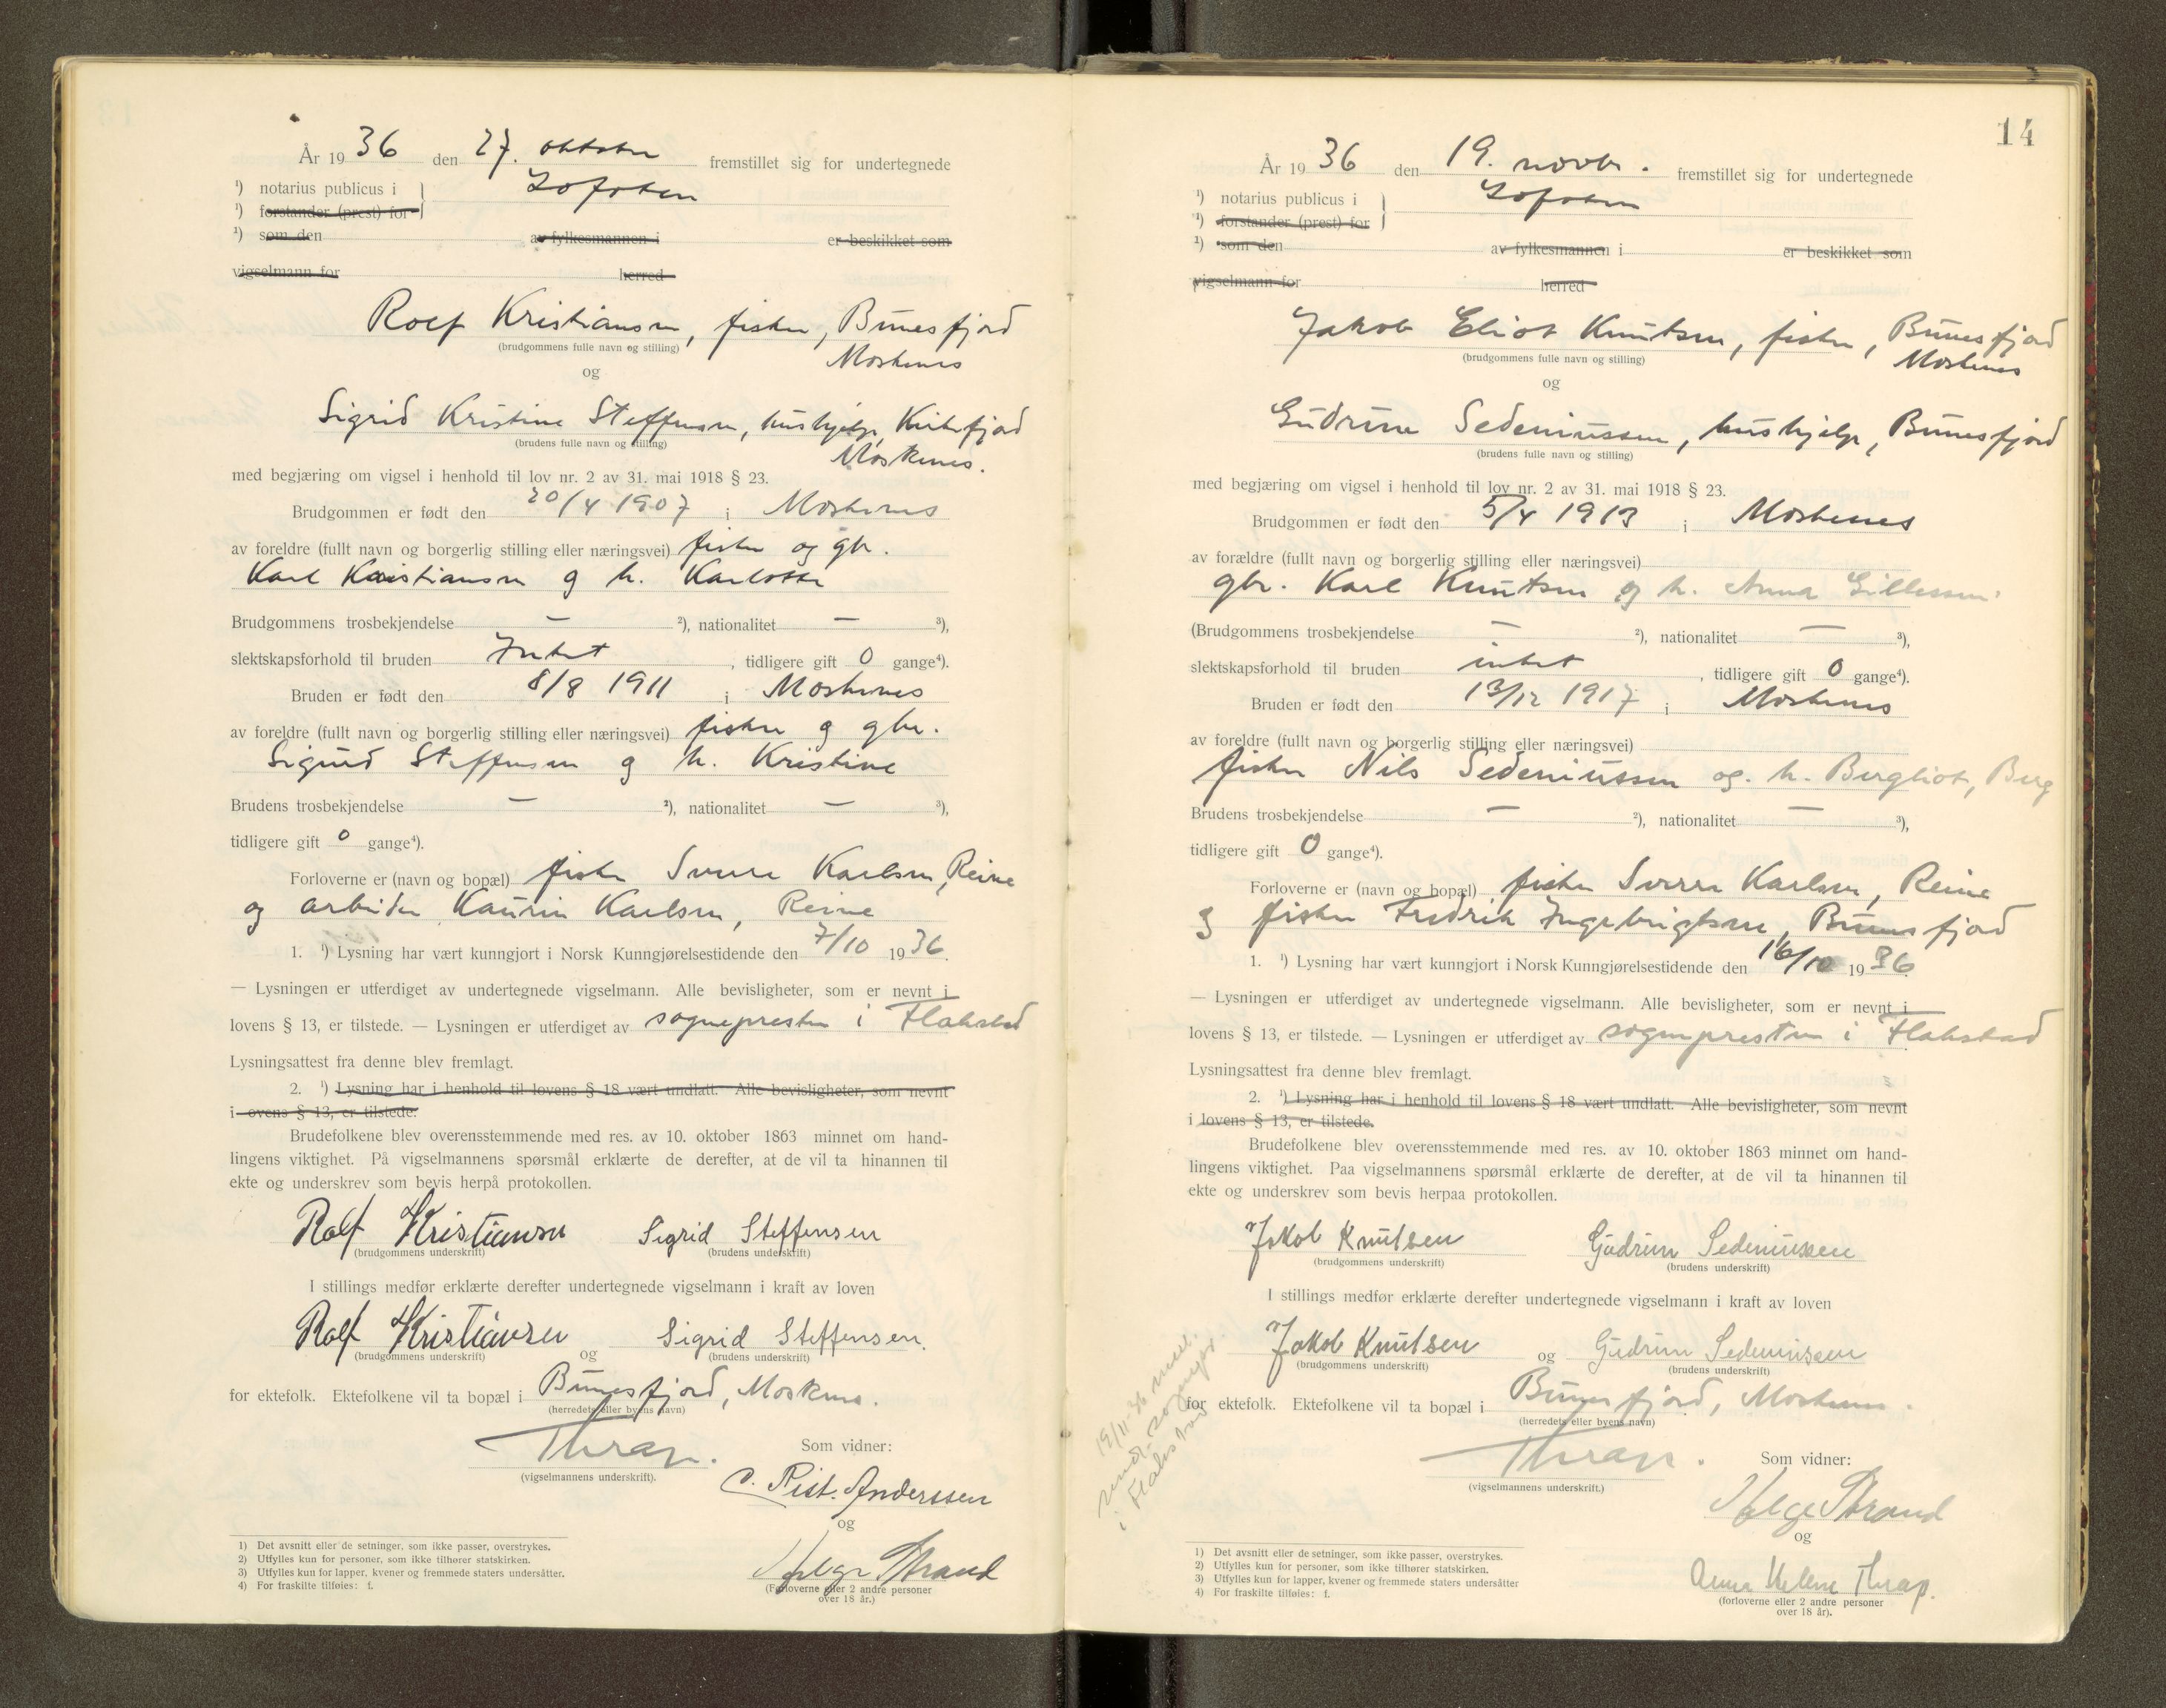 År 19 36 den 27. oktober fremstillet sig for undertegnede
¹) notarius publicus i Lofoten
¹) forstander (prest) for
¹) som den av fylkesmannen i er beskikket som
vigselmann for herred
Rolf Kristiansen, fisker, Bunesfjord
(brudgommens fulle navn og stilling)
Moskenes
og
Sigrid Kristine Steffensen, hushjelp, Kirkefjord
(brudens fulle navn og stilling)
Moskenes.
med begjæring om vigsel i henhold til lov nr. 2 av 31. mai 1918 § 23.
Brudgommen er født den 20/4 1907 i Moskenes
av foreldre (fullt navn og borgerlig stilling eller næringsvei) fisker og gbr.
Karl Kristiansen og h. Karlotte
Brudgommens trosbekjendelse — ²), nationalitet — ³),
slektskapsforhold til bruden Intet , tidligere gift 0 gange⁴).
Bruden er født den 8/8 1911 i Moskenes
av foreldre (fullt navn og borgerlig stilling eller næringsvei) fisker og gbr.
Sigurd Steffensen og h. Kristine
Brudens trosbekjendelse — ²), nationalitet — ³),
tidligere gift 0 gange⁴).
Forloverne er (navn og bopæl) fisker Sverre Karlsen, Reine
og arbeider Kaurin Karlsen, Reine
1. ¹) Lysning har vært kunngjort i Norsk Kunngjørelsestidende den 7/10 1936.
— Lysningen er utferdiget av undertegnede vigselmann. Alle bevisligheter, som er nevnt i
lovens § 13, er tilstede. — Lysningen er utferdiget av sognepresten i Flakstad
Lysningsattest fra denne blev fremlagt.
2. ¹) Lysning har i henhold til lovens § 18 vært undlatt. Alle bevisligheter, som nevnt
i ovens § 13, er tilstede.
Brudefolkene blev overensstemmende med res. av 10. oktober 1863 minnet om hand-
lingens viktighet. På vigselmannens spørsmål erklærte de derefter, at de vil ta hinannen til
ekte og underskrev som bevis herpå protokollen.
Rolf Kristiansen Sigrid Steffensen
(brudgommens underskrift) (brudens underskrift)
I stillings medfør erklærte derefter undertegnede vigselmann i kraft av loven
Rolf Kristiansen og Sigrid Steffensen.
(brudgommens underskrift) (brudens underskrift)
for ektefolk. Ektefolkene vil ta bopæl i Bunesfjord, Moskenes.
(herredets eller byens navn)
Thrap. Som vidner:
(vigselmannens underskrift).
C. Rist. Anderssen
og
Helge Strand
(Forloverne eller 2 andre personer
over 18 år.)
1) Det avsnitt eller de setninger, som ikke passer, overstrykes.
2) Utfylles kun for personer, som ikke tilhører statskirken.
3) Utfylles kun for lapper, kvener og fremmede staters undersåtter.
4) For fraskilte tilføies: f.
14
År 19 36 den 19. novbr. fremstillet sig for undertegnede
¹) notarius publicus i Lofoten
¹) forstander (prest) for
¹) som den av fylkesmannen i er beskikket som
vigselmann for herred
Jakob Eliot Knutsen, fisker, Bunesfjord
(brudgommens fulle navn og stilling)
Moskenes
og
Gudrun Sedeniussen, hushjelp, Bunesfjord
(brudens fulle navn og stilling)
med begjæring om vigsel i henhold til lov nr. 2 av 31. mai 1918 § 23.
Brudgommen er født den 5/4 1913 i Moskenes
av forældre (fullt navn og borgerlig stilling eller næringsvei)
gbr. Karl Knutsen og h. Anna
(Brudgommens trosbekjendelse — ²), nationalitet — ³),
slektskapsforhold til bruden intet , tidligere gift 0 gange⁴).
Bruden er født den 13/12 1917 i Moskenes
av foreldre (fullt navn og borgerlig stilling eller næringsvei)
fisker Nils Sedeniussen og h. Bergliot, Berg
Brudens trosbekjendelse — ²), nationalitet — ³),
tidligere gift 0 gange⁴).
Forloverne er (navn og bopæl) fisker Sverre Karlsen, Reine
og fisker Fredrik Ingebrigtsen, Bunesfjord
1. ¹) Lysning har vært kunngjort i Norsk Kunngjørelsestidende den 16/10 1936.
— Lysningen er utferdiget av undertegnede vigselmann. Alle bevisligheter, som er nevnt i
lovens § 13, er tilstede. — Lysningen er utferdiget av sognepresten i Flakstad
Lysningsattest fra denne blev fremlagt.
2. ¹) Lysning har i henhold til lovens § 18 vært undlatt. Alle bevisligheter, som nevnt
i lovens § 13, er tilstede.
Brudefolkene blev overensstemmende med res. av 10. oktober 1863 minnet om hand-
lingens viktighet. Paa vigselmannens spørsmål erklærte de derefter, at de vil ta hinannen til
ekte og underskrev som bevis herpaa protokollen.
Jakob Knutsen Gudrun Sedeniussen
(brudgommens underskrift) (brudens underskrift)
I stillings medfør erklærte derefter undertegnede vigselmann i kraft av loven
Jakob Knutsen og Gudrun Sedeniussen
(brudgommens underskrift) (brudens underskrift)
for ektefolk. Ektefolkene vil ta bopæl i Bunesfjord, Moskenes.
(herredets eller byens navn)
19/11-36
i Flakstad
Thrap. Som vidner:
(vigselmannens underskrift.)
Helge Strand
og
Anna Helene Thrap.
(forloverne eller 2 andre personer
over 18 år).
1) Det avsnitt eller de setninger, som ikke passer, overstrykes.
2) Utfylles kun for personer, som ikke tilhører statskirken.
3) Utfylles kun for lapper, kvener og fremmede staters undersåtter
4) For fraskilte tilføies: f.